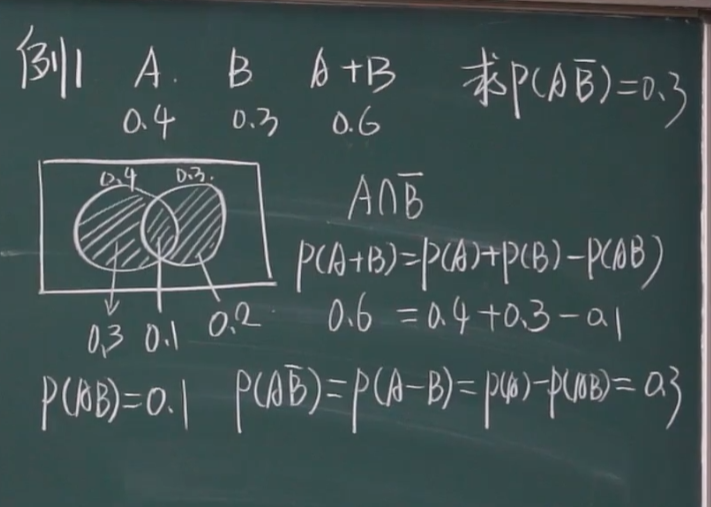 例1 A. B A+B 求P(AB̅)=0.3
0.4 0.3 0.6
0.4 0.3.
A∩B̅
P(A+B)=P(A)+P(B)-P(AB)
0.3 0.1 0.2
0.6 =0.4+0.3-0.1
P(AB)=0.1 P(AB̅)=P(A-B)=P(A)-P(AB)=0.3